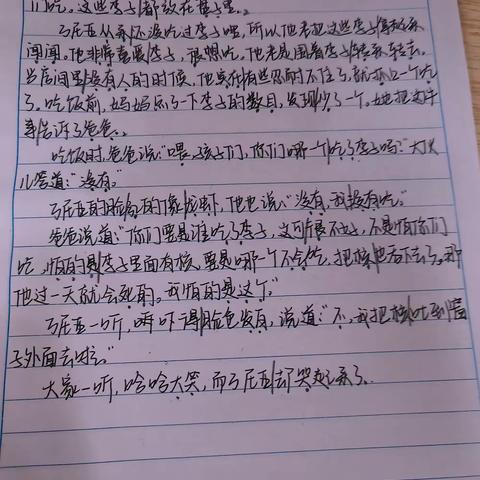 们吃。这些李子都放在盘子里。
瓦尼亚从来还没吃过李子哩，所以他老把这些李子拿起来
闻闻。他非常喜爱李子，很想吃。他老是围着李子转来转去。
当房间里没有人的时候，他实在有些忍耐不住了，就抓一个吃
了。吃饭前，妈妈点了一下李子的数目，发现少了一个。她把这件
事告诉了爸爸。
吃饭时，爸爸说："喂，孩子们，你们哪一个吃了李子吗？"大伙
儿答道："没有。"
瓦尼亚的脸红的像龙虾，他也说："没有，我没有吃。"
爸爸说道："你们要是谁吃了李子，这可很不好，不是怕你们
吃，怕的是李子里面有核，要是哪一个不会吃，把核也吞下去了，那
他过一天就会死的。我怕的是这个。"
瓦尼亚一听，唰吓得脸色发白，说道："不，我把核吐到窗
子外面去啦。"
大家一听，哈哈大笑，而瓦尼亚却哭起来了。